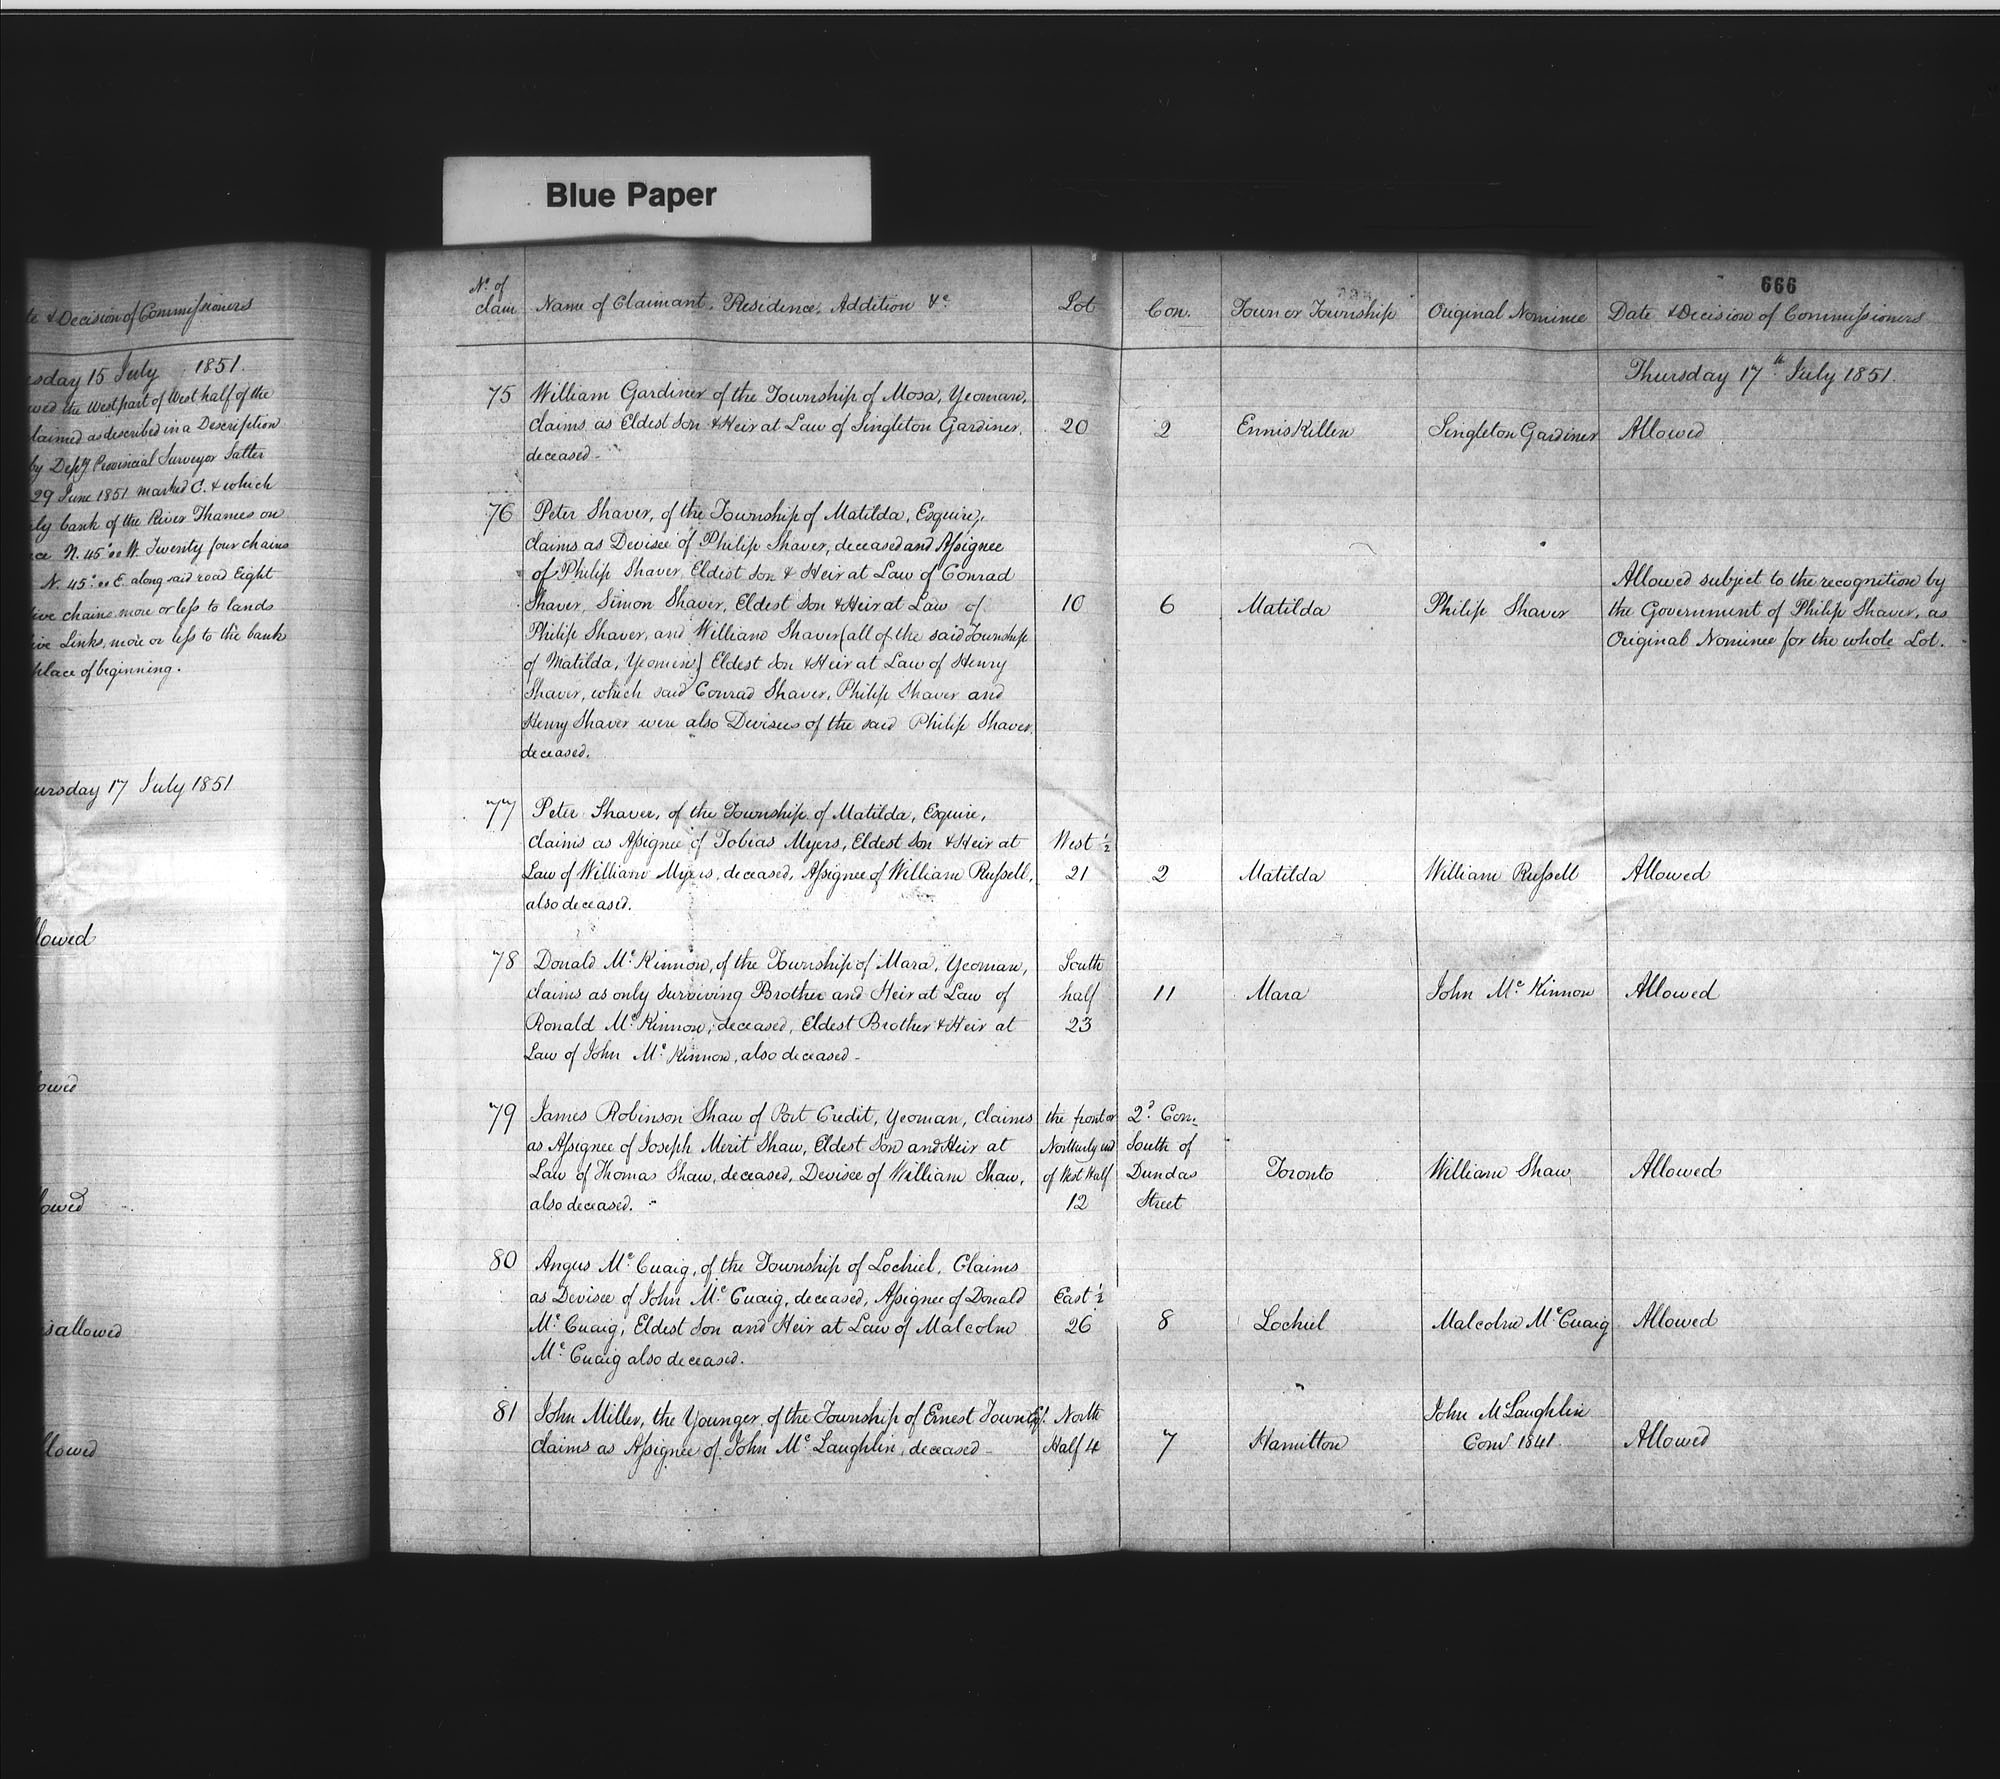 Blue Paper
& Decision of Commissioners
15 July 1851.
the West part of West half of the
claimed as described in a Description
by Depy Provincial Surveyor Salter
29 June 1851 marked C. & which
bank of the River Thames on
N. 45° 00 W. Twenty four chains
N. 45° 00 E. along said road Eight
five chains more or less to lands
five Links, more or less to the bank
place of beginning.
17 July 1851
666
No. of
claim
Name of Claimant, Residence, Addition &c.
Lot
Con.
Town or Township
Original Nominee
Date & Decision of Commissioners
Thursday 17th July 1851.
75 William Gardiner of the Township of Mosa, Yeoman,
claims as Eldest Son & Heir at Law of Singleton Gardiner, 20 2 Enniskillen Singleton Gardiner Allowed
deceased -
76 Peter Shaver, of the Township of Matilda, Esquire,
claims as Devisee of Philip Shaver, deceased and Assignee
of Philip Shaver Eldest Son & Heir at Law of Conrad Allowed subject to the recognition by
Shaver, Simon Shaver, Eldest Son & Heir at Law of 10 6 Matilda Philip Shaver the Government of Philip Shaver, as
Philip Shaver, and William Shaver (all of the said Township Original Nominee for the whole Lot.
of Matilda, Yeomen) Eldest Son & Heir at Law of Henry
Shaver, which said Conrad Shaver, Philip Shaver and
Henry Shaver were also Devisees of the said Philip Shaver
deceased.
77 Peter Shaver, of the Township of Matilda, Esquire,
claims as Assignee of Tobias Myers, Eldest Son & Heir at West ½
Law of William Myers, deceased, Assignee of William Russell, 21 2 Matilda William Russell Allowed
also deceased.
78 Donald Mc Kinnon, of the Township of Mara, Yeoman, South
claims as only surviving Brother and Heir at Law of half 11 Mara John Mc Kinnon Allowed
Ronald Mc Kinnon, deceased, Eldest Brother & Heir at 23
Law of John Mc Kinnon, also deceased -
79 James Robinson Shaw of Port Credit, Yeoman, Claims the front or 2d Con.
as Assignee of Joseph Merit Shaw, Eldest Son and Heir at Northerly end South of
Law of Thomas Shaw, deceased, Devisee of William Shaw, of West Half Dundas Toronto William Shaw Allowed
also deceased. 12 Street
80 Angus Mc Cuaig, of the Township of Lochiel, Claims
as Devisee of John Mc Cuaig, deceased, Assignee of Donald East ½
Mc Cuaig, Eldest Son and Heir at Law of Malcolm 26 8 Lochiel Malcolm Mc Cuaig Allowed
Mc Cuaig also deceased.
81 John Miller, the Younger, of the Township of Ernest Town North John McLaughlin
claims as Assignee of John Mc Laughlin, deceased - Half 4 7 Hamilton 1841. Allowed